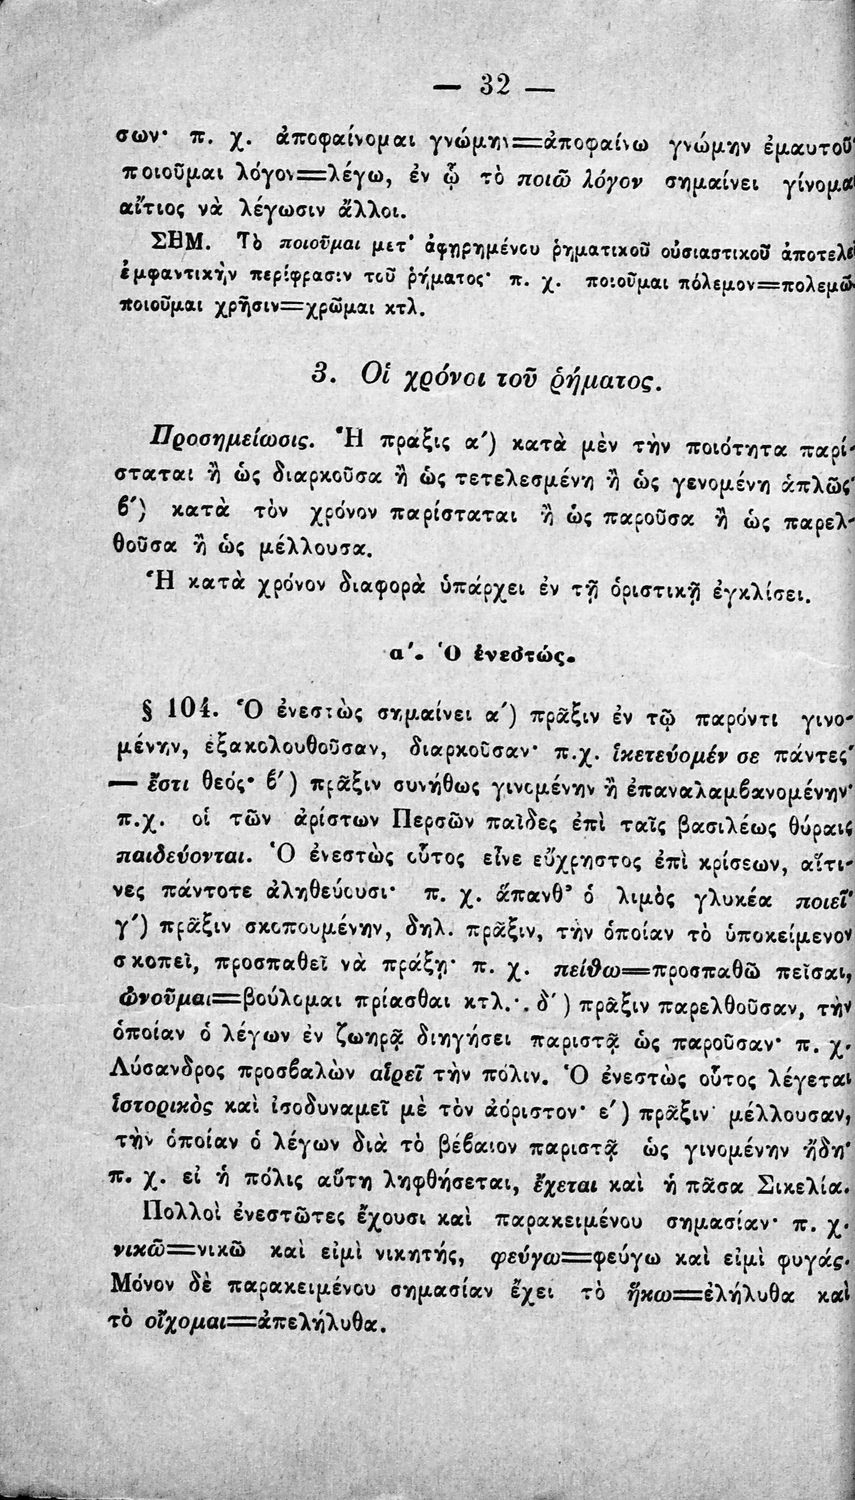 — 32 —
σων· π. χ. ἀποφαίνομαι γνώμην=ἀποφαίνω γνώμην ἐμαυτοῦ·
ποιοῦμαι λόγον=λέγω, ἐν ᾧ τὸ ποιῶ λόγον σημαίνει γίνομαι
αἴτιος νὰ λέγωσιν ἄλλοι.
ΣΗΜ. Τὸ ποιοῦμαι μετ᾽ ἀφῃρημένου ῥηματικοῦ οὐσιαστικοῦ ἀποτελεῖ
ἐμφαντικὴν περίφρασιν τοῦ ῥήματος· π. χ. ποιοῦμαι πόλεμον=πολεμῶ·
ποιοῦμαι χρῆσιν=χρῶμαι κτλ.
3. Οἱ χρόνοι τοῦ ῥήματος.
Προσημείωσις. Ἡ πρᾶξις α΄) κατὰ μὲν τὴν ποιότητα παρί-
σταται ἢ ὡς διαρκοῦσα ἢ ὡς τετελεσμένη ἢ ὡς γενομένη ἁπλῶς·
β΄) κατὰ τὸν χρόνον παρίσταται ἢ ὡς παροῦσα ἢ ὡς παρελ-
θοῦσα ἢ ὡς μέλλουσα.
Ἡ κατὰ χρόνον διαφορὰ ὑπάρχει ἐν τῇ ὁριστικῇ ἐγκλίσει.
α΄. Ὁ ἐνεστώς.
§ 104. Ὁ ἐνεστὼς σημαίνει α΄) πρᾶξιν ἐν τῷ παρόντι γινο-
μένην, ἐξακολουθοῦσαν, διαρκοῦσαν· π.χ. ἱκετεύομέν σε πάντες·
— ἔστι θεός· β΄) πρᾶξιν συνήθως γινομένην ἢ ἐπαναλαμβανομένην·
π.χ. οἱ τῶν ἀρίστων Περσῶν παῖδες ἐπὶ ταῖς βασιλέως θύραις
παιδεύονται. Ὁ ἐνεστὼς οὗτος εἶνε εὔχρηστος ἐπὶ κρίσεων, αἵτι-
νες πάντοτε ἀληθεύουσι· π. χ. ἅπανθ᾽ ὁ λιμὸς γλυκέα ποιεῖ·
γ΄) πρᾶξιν σκοπουμένην, δηλ. πρᾶξιν, τὴν ὁποίαν τὸ ὑποκείμενον
σκοπεῖ, προσπαθεῖ νὰ πράξῃ· π. χ. πείθω=προσπαθῶ πεῖσαι,
ὠνοῦμαι=βούλομαι πρίασθαι κτλ.·. δ΄) πρᾶξιν παρελθοῦσαν, τὴν
ὁποίαν ὁ λέγων ἐν ζωηρᾷ διηγήσει παριστᾷ ὡς παροῦσαν· π. χ.
Λύσανδρος προσβαλὼν αἱρεῖ τὴν πόλιν. Ὁ ἐνεστὼς οὗτος λέγεται
ἱστορικὸς καὶ ἰσοδυναμεῖ μὲ τὸν ἀόριστον· ε΄) πρᾶξιν μέλλουσαν,
τὴν ὁποίαν ὁ λέγων διὰ τὸ βέβαιον παριστᾷ ὡς γινομένην ἤδη·
π. χ. εἰ ἡ πόλις αὕτη ληφθήσεται, ἔχεται καὶ ἡ πᾶσα Σικελία.
Πολλοὶ ἐνεστῶτες ἔχουσι καὶ παρακειμένου σημασίαν· π. χ.
νικῶ=νικῶ καὶ εἰμὶ νικητής, φεύγω=φεύγω καὶ εἰμὶ φυγάς.
Μόνον δὲ παρακειμένου σημασίαν ἔχει τὸ ἥκω=ἐλήλυθα καὶ
τὸ οἴχομαι=ἀπελήλυθα.